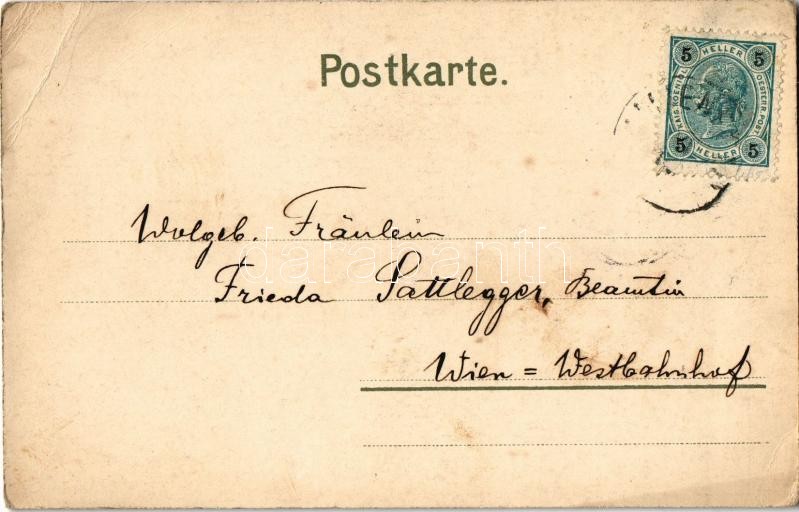 Postkarte.
5 HELLER 5
KAIS. KOENIGL. OESTERR. POST
5 HELLER 5
Wolgeb. Fräulein
darabanth
Frieda Sattlegger, Beamtin
Wien = Westbahnhof